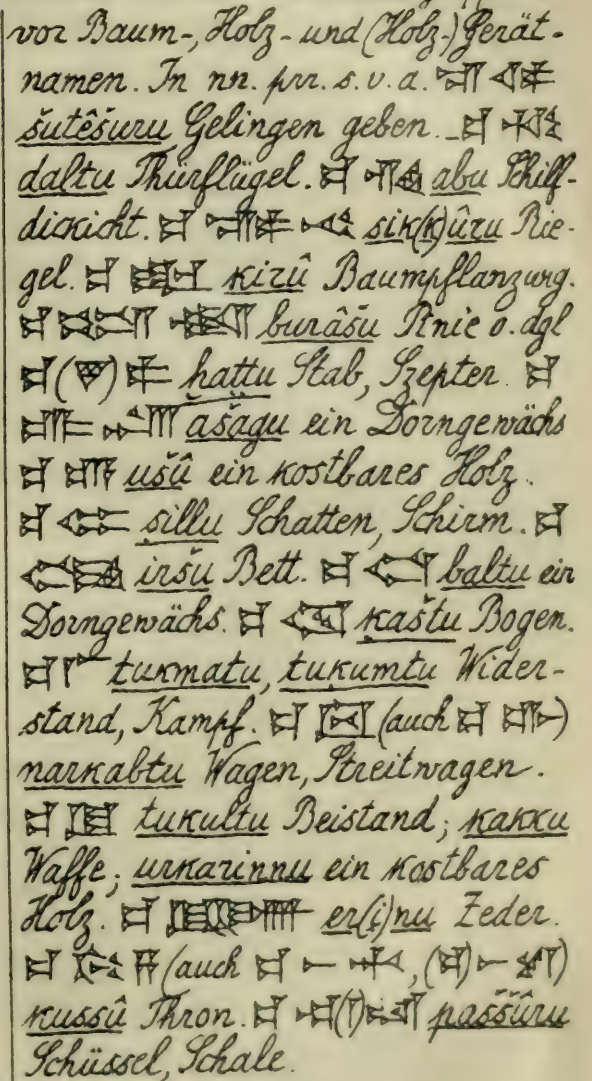 vor Baum-, Holz- und (Holz-) Gerät-
namen. In nn. prr. s. v. a. 𒋛𒁲
šutêšuru Gelingen geben. 𒄑 𒅅
daltu Thürflügel. 𒄑 𒄀 abu Schilf-
dickicht. 𒄑 sik(k)ûru Rie-
gel. 𒄑 𒊬 kirû Baumpflanzung.
𒄑 𒋆𒇷 burâšu Pinie o. dgl
𒄑 𒉺 ḫaṭṭu Stab, Szepter. 𒄑
𒌑𒄈 ašâgu ein Dorngewächs
𒄑 𒆗 ušû ein kostbares Holz.
𒄑 𒈪 ṣillu Schatten, Schirm. 𒄑
𒈿 iršu Bett. 𒄑 baltu ein
Dorngewächs. 𒄑 𒉼 ḳaštu Bogen.
𒄑 𒇲 tuḳmatu, tuḳumtu Wider-
stand, Kampf. 𒄑 𒇀 (auch 𒄑)
narkabtu Wagen, Streitwagen.
𒄑 𒆪 tukultu Beistand; kakku
Waffe; urkarinnu ein kostbares
Holz. 𒄑 𒂞 er(i)nu Zeder.
𒄑 𒄖 𒍝 (auch 𒄑 𒀸 , (𒄑) 𒀸)
kussû Thron. 𒄑 paššûru
Schüssel, Schale.